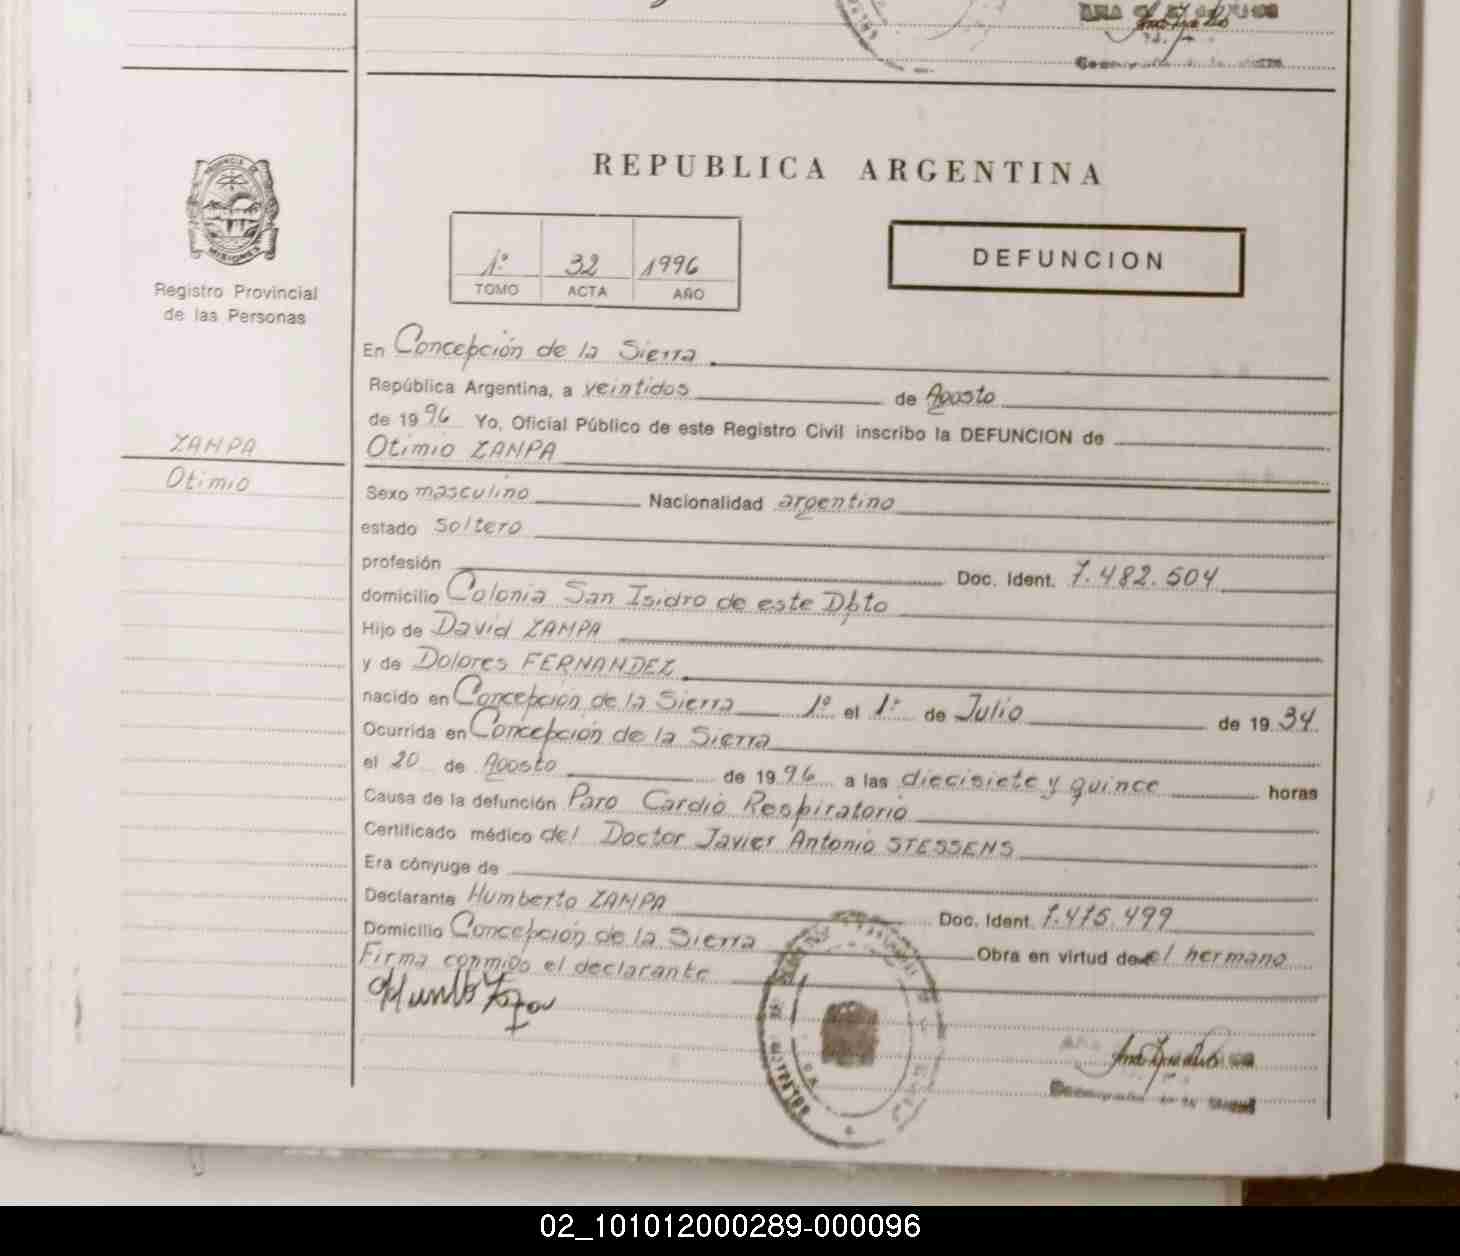 REPUBLICA ARGENTINA
MISIONES
Registro Provincial
de las Personas
1º 32 1996
TOMO ACTA AÑO
DEFUNCION
En Concepción de la Sierra
República Argentina, a veintidos de Agosto
de 1996 Yo, Oficial Público de este Registro Civil inscribo la DEFUNCION de
ZAMPA
Otimio
Otimio ZAMPA
Sexo masculino Nacionalidad argentino
estado soltero
profesión Doc. Ident. 7.482.504
domicilio Colonia San Isidro de este Dpto
Hijo de David ZAMPA
y de Dolores FERNANDEZ
nacido en Concepción de la Sierra 1º el 1º de Julio de 1934
Ocurrida en Concepción de la Sierra
el 20 de Agosto de 1996 a las diecisiete y quince horas
Causa de la defunción Paro Cardio Respiratorio
Certificado médico del Doctor Javier Antonio STESSENS
Era cónyuge de
Declarante Humberto ZAMPA Doc. Ident. 7.475.499
Domicilio Concepción de la Sierra Obra en virtud de el hermano
Firma conmigo el declarante
02_101012000289-000096